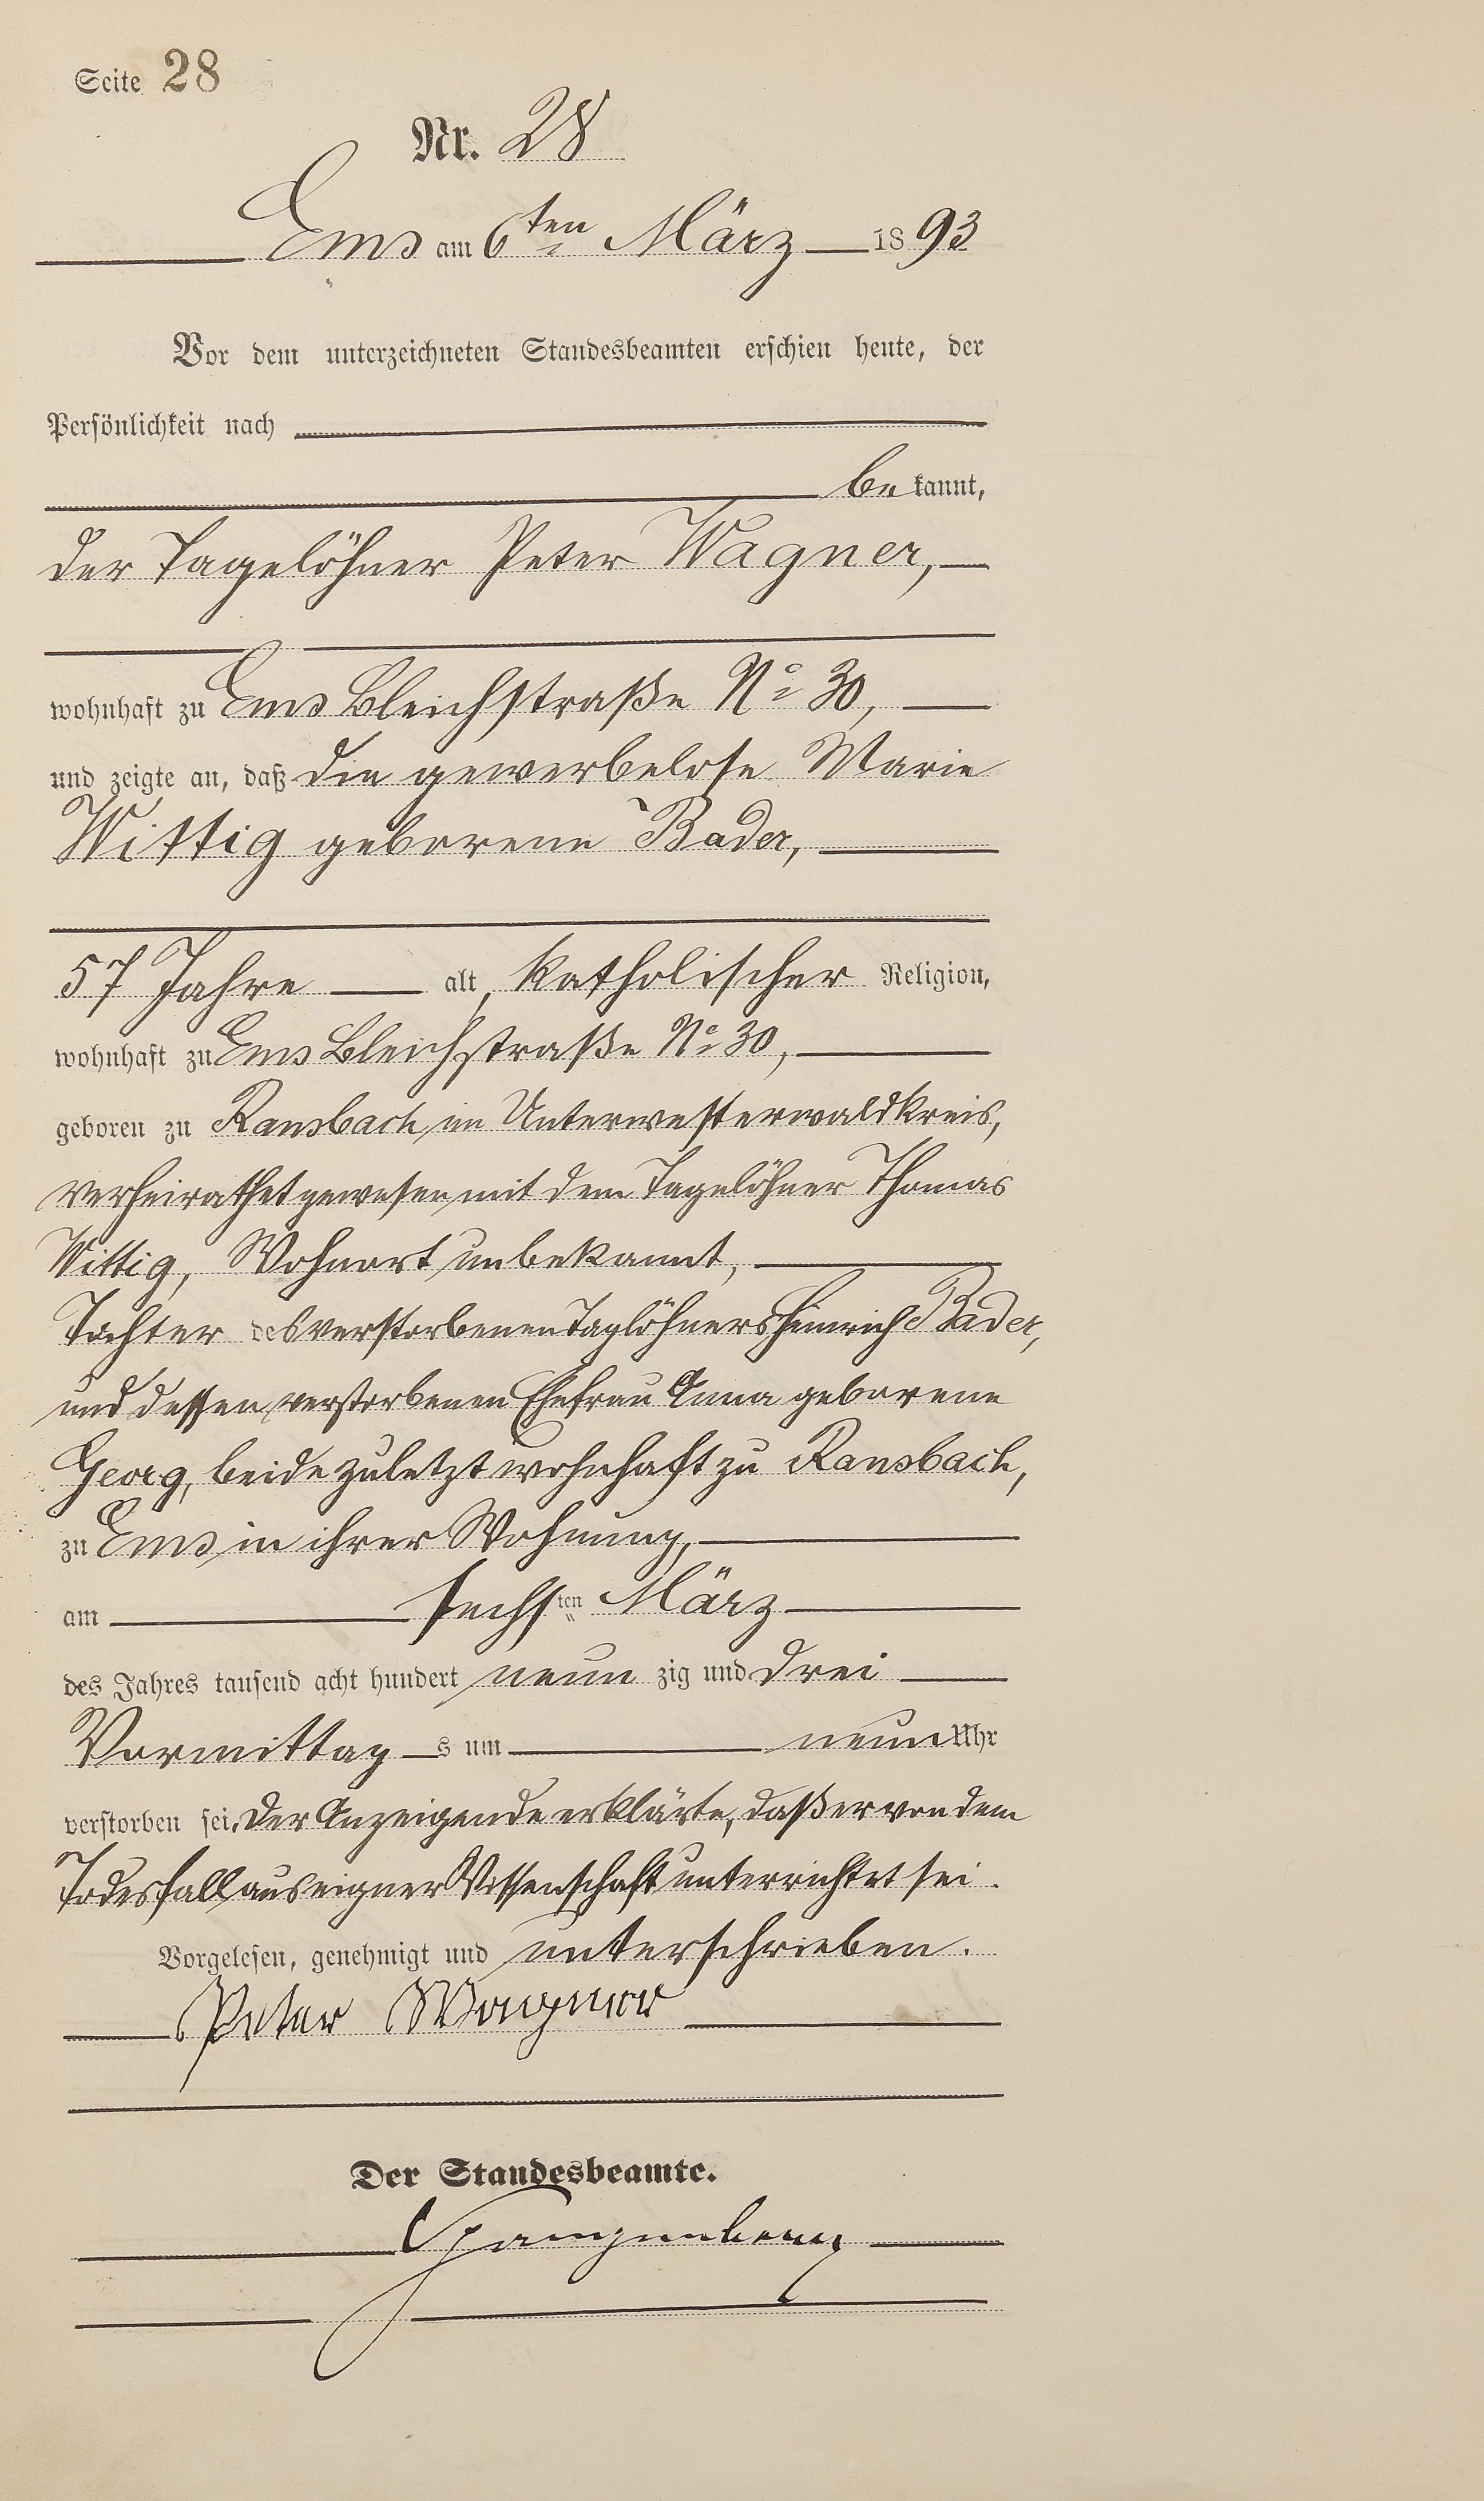 Seite 28
Nr. 28
Ems am 6ten März 1893
Vor dem unterzeichneten Standesbeamten erschien heute, der
Persönlichkeit nach
bekannt,
der Tagelöhner Peter Wagner,
wohnhaft zu Ems Bleichstraße No 30,
und zeigte an, daß die gewerbelose Marie
Wittig geborene Bader,
57 Jahre alt, katholischer Religion,
wohnhaft zu Ems Bleichstraße No 30,
geboren zu Ransbach im Unterwesterwaldkreis,
verheirathet gewesen mit dem Tagelöhner Thomas
Wittig, Wohnort unbekannt,
Tochter des verstorbenen Taglöhners Heinrich Bader,
und dessen verstorbenen Ehefrau Anna geborene
Georg, beide zuletzt wohnhaft zu Ransbach,
zu Ems in ihrer Wohnung,
am sechsten März
des Jahres tausend acht hundert neun zig und drei
Vormittag s um neun Uhr
verstorben sei. Der Anzeigende erklärte, daß er von dem
Todesfall aus eigner Wissenschaft unterrichtet sei.
Vorgelesen, genehmigt und unterschrieben.
Peter Wagner
Der Standesbeamte.